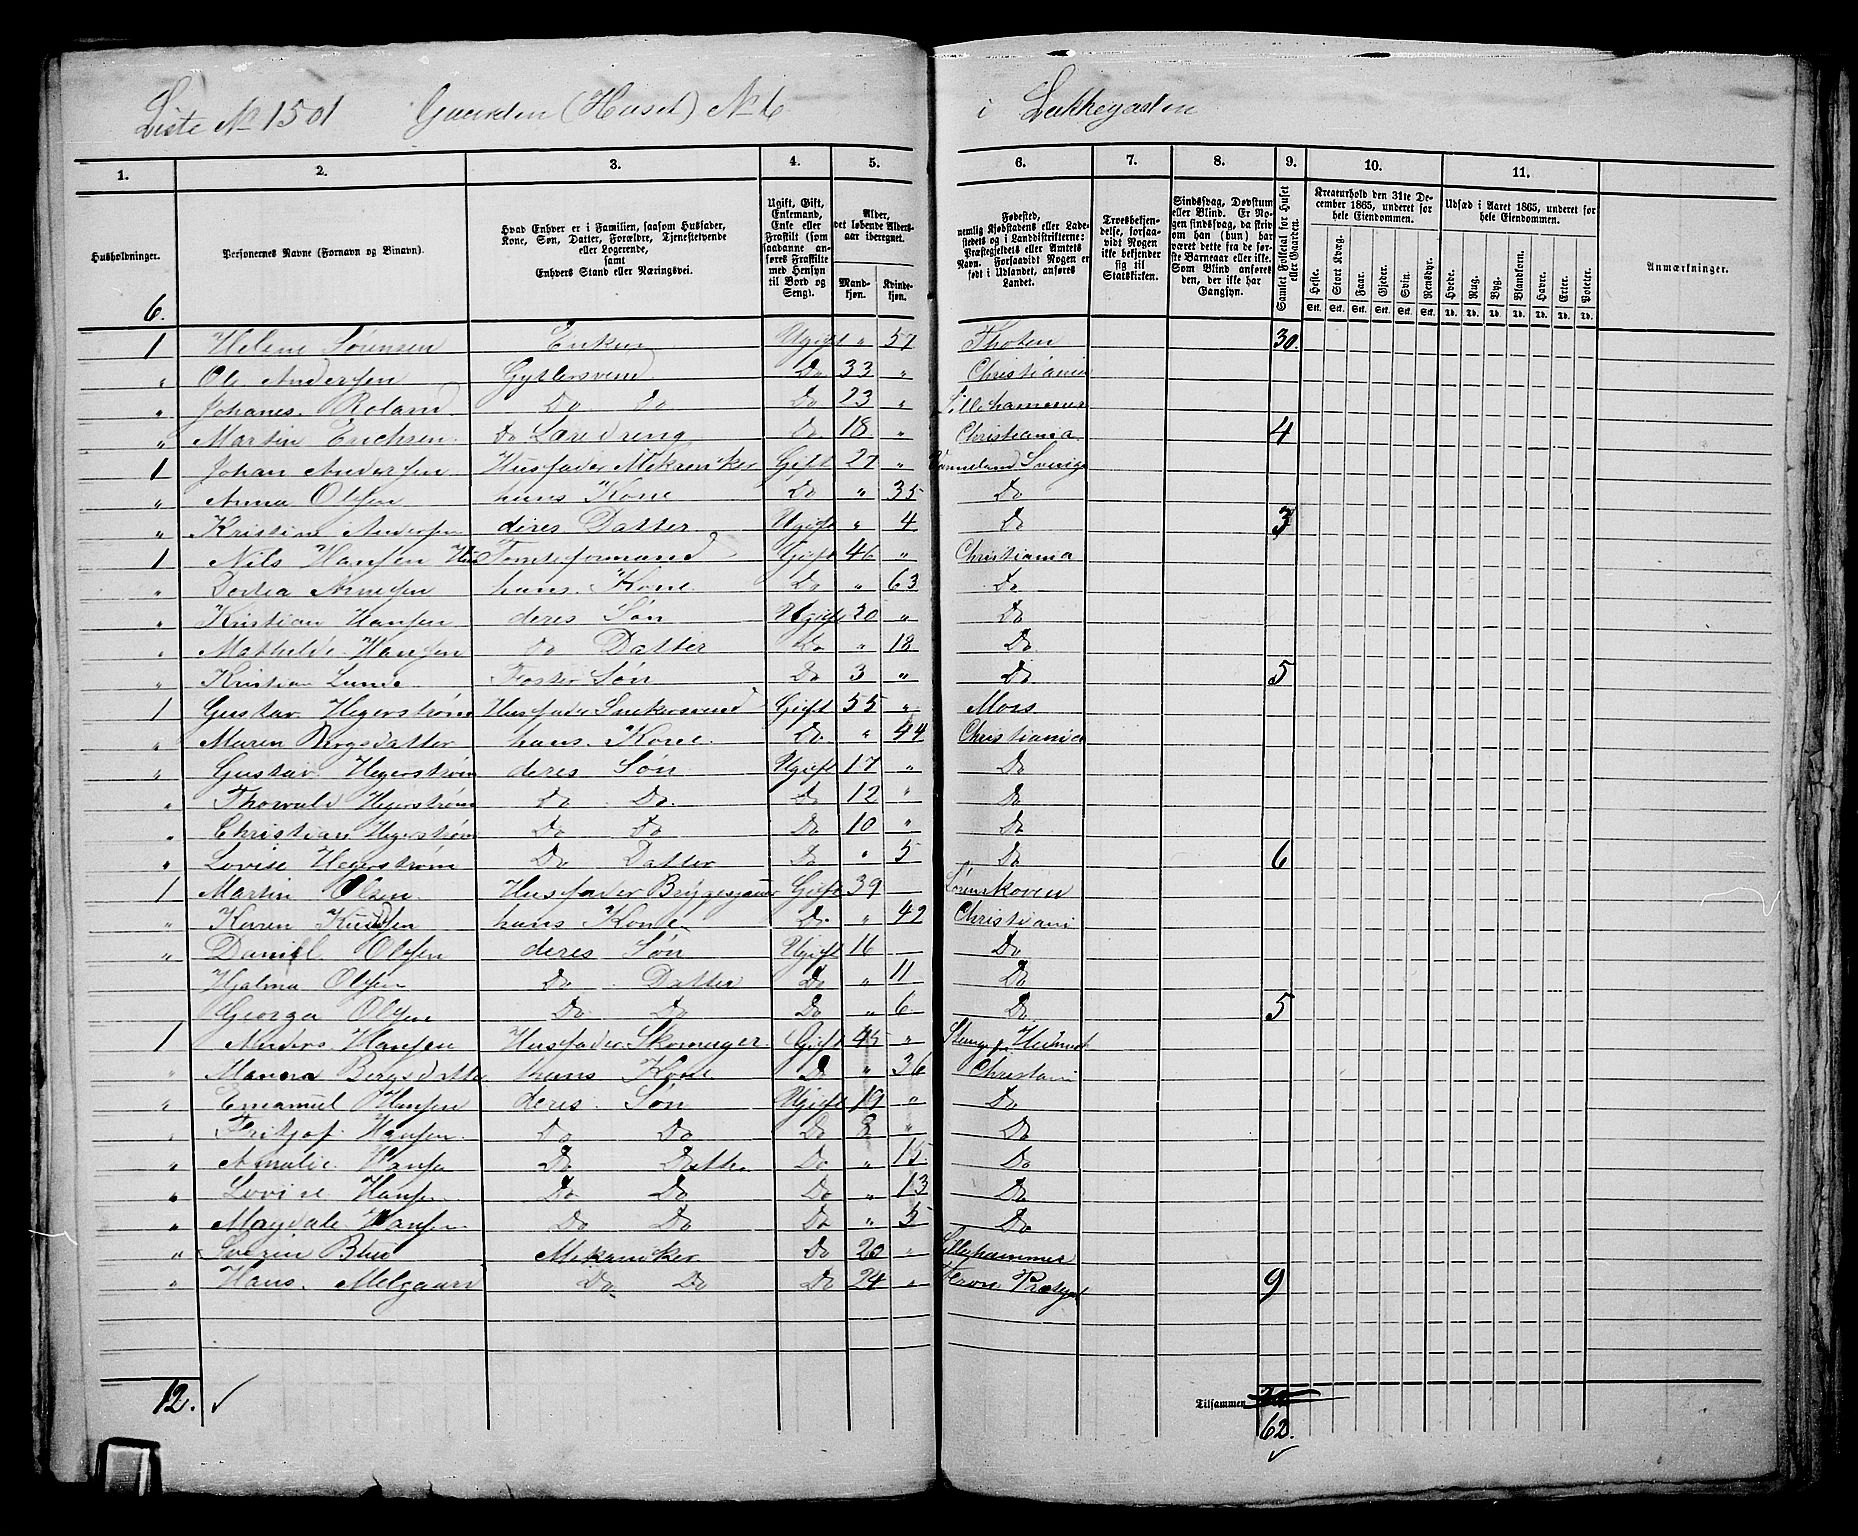 Liste No 1501 Gaarden (Huset) No 6 i Løkkegaden
1. 2. 3. 4. 5. 6. 7. 8. 9. 10. 11.
Husholdninger.
Personernes Navne (Fornavn og Binavn).
Hvad Enhver er i Familien, saasom Husfader, Kone, Søn, Datter, Forældre, Tjenestetyende eller Logerende, samt Enhvers Stand eller Næringsvei.
Ugift, Gift, Enkemand, Enke eller Fraskilt (som saadanne anføres Fraskilte med Hensyn til Bord og Seng).
Alder, det løbende Aldersaar iberegnet.
Mandkjøn. Kvindekjøn.
Fødested, nemlig Kjøbstadens eller Ladestedets og i Landdistrikterne: Præstegjeldets eller Amtets Navn. Forsaavidt Nogen er født i Udlandet, anføres Landet.
Troesbekjendelse, forsaavidt Nogen ikke bekjender sig til Statskirken.
Sindssvag, Døvstum eller Blind. Er Nogen sindssvag, da skriv om han (hun) har været dette fra de første Barneaar eller ikke. Som Blind anføres den, der ikke har Gangsyn.
Samlet Folketal for Huset eller Gaarden.
Kreaturhold den 31te December 1865, underet for hele Eiendommen.
Heste. Stort Kvæg. Faar. Gjeder. Svin. Rensdyr.
Stk. Stk. Stk. Stk. Stk. Stk.
Udsæd i Aaret 1865, underet for hele Eiendommen.
Hvede. Rug. Byg. Blandkorn. Havre. Erter. Poteter.
Td. Td. Td. Td. Td. Td. Td.
Anmærkninger.
6.
1 Helene Sørensen Enken Ugift " 57 Thoten 30.
" Ole Andersen Gytlersvend Do 33 " Christiania
" Johanes Roland Do do Do 23 " Lillehammer
" Martin Erichsen Do Læredreng Do 18 " Christiania 4
1 Johan Andersen Husfader Mekaniker Gift 27 " Værmeland Sverige
" Anna Olsen hans Kone Do " 35 Do
" Kristine Andersen deres Datter Ugift " 4 Do 3
1 Nils Hansen Tomteformand Gift 46 " Christiania
" Dortea hans Kone Do " 63 Do
" Kristian Hansen deres Søn Ugift 20 " Do
" Mathilde Hansen do Datter Do " 18 Do
" Kristian Lunde Foster Søn Do 3 " Do 5
1 Gustav Hegerstrøm Husfader Snekersvend Gift 55 " Mors
" Maren Bergsdatter hans Kone Do " 44 Christiania
" Gustav Hegerstrøm deres Søn Ugift 17 " Do
" Thorvald Hegerstrøm Do Do Do 12 " Do
" Christian Hegerstrøm Do Do Do 10 " Do
" Lovise Hegerstrøm Do Datter Do " 5 Do 6
1 Martin Olsen Husfader Bryggesjauer Gift 39 Lørenskoven
" Karen Knudsen hans Kone Do " 42 Christiani
" Daniel Olsen deres Søn Ugift 16 Do
Hjalma Olsen Do Datter Do " 11 Do
Georga Olsen Do Do Do " 6 Do 5
1 Anders Hansen Husfader Skomager Gift 45 "
" Manna Bergsdatte hans Kone Do " 36 Christiani
" Emanuel Hansen deres Søn Ugift 19 " Do
" Frithjof Hansen Do Do Do 8 " Do
" Amalie Hansen Do Datter Do " 15 Do
" Lovise Hansen Do Do Do " 13 Do
" Magdale Hansen Do Do Do " 5 Do
" Severin Mekaniker Do 20 " Lillehammer
" Hans Melgaard Do Do Do 24 " 9
12. ✓
Tilsammen
62. ✓